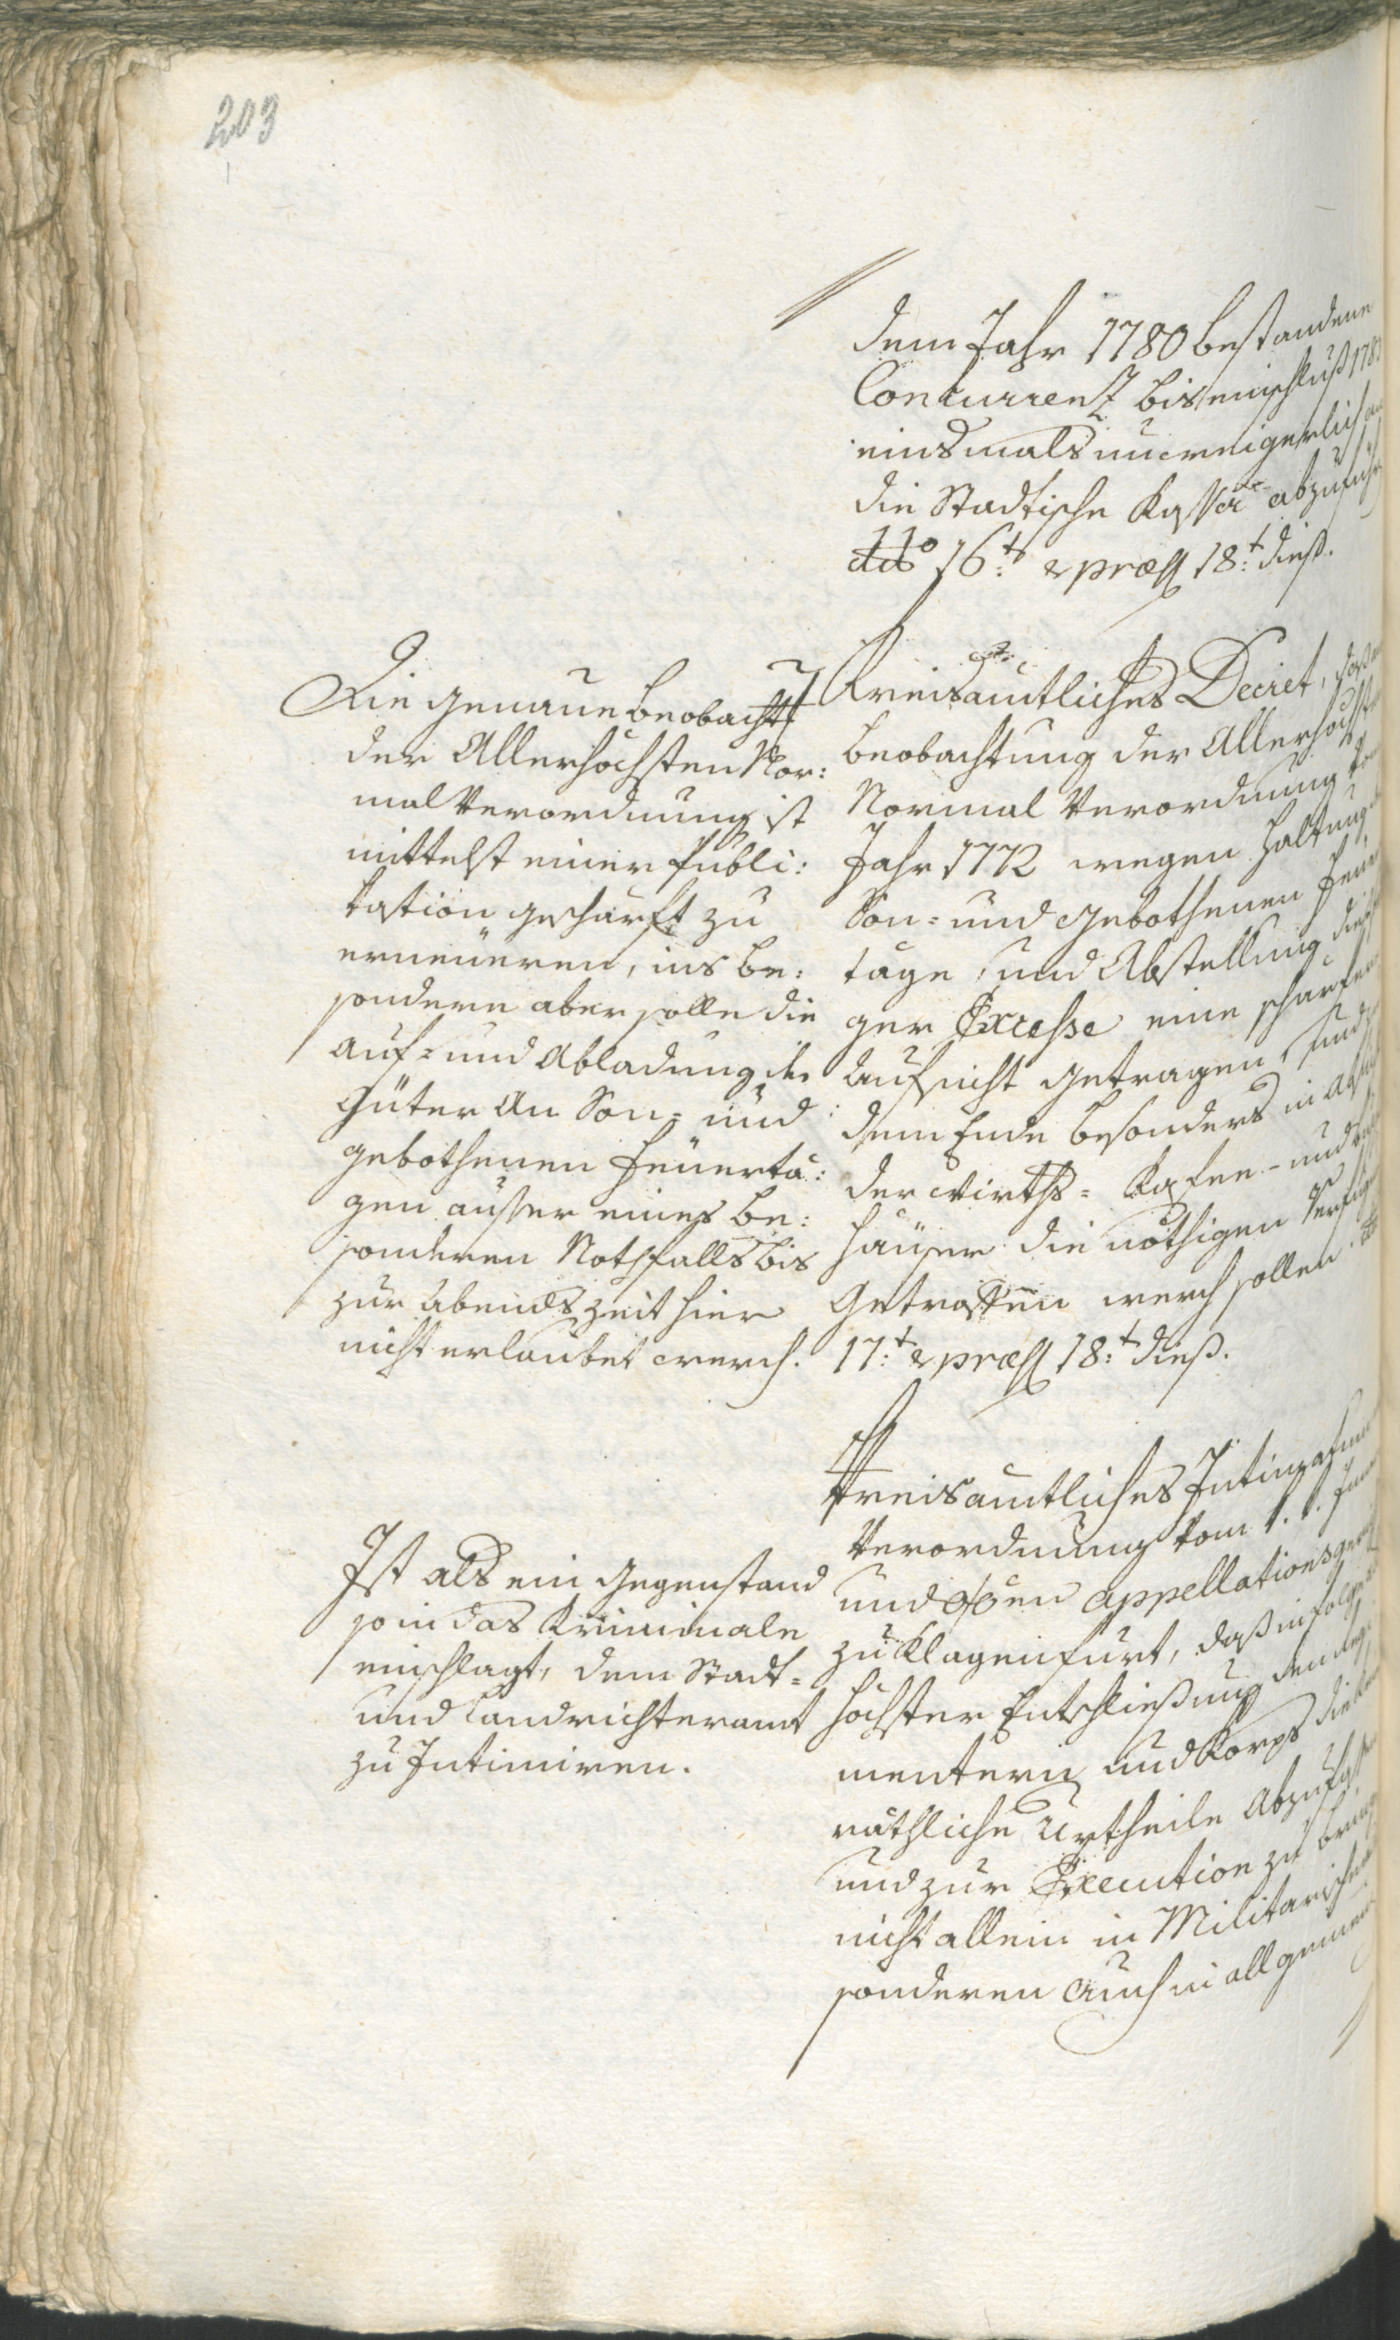 203
dem Jahr 1780 bestandene
Concurrenz bis einschluß 178
einsmals unweigerlich an
die Stadtische Kassa abzuführ
ddo 16:t & præs 18:t dieß.
Die genaue beobacht
der Allerhöchsten Nor:
mal Verordnung ist
mittelst einer Publi:
kation geschärft zu
erneueren, ins be:
sondere aber solle die
Auf= und Abladung der
Güter an Son= und
gebothenen Feuerta:
gen ausser eines be:
sonderen Nothfalls bis
zur abends zeit hier
nicht erlaubet werd.
Kreisamtliches Decret, daß
beobachtung der Allerhöchst
Normal Verordnung vom
Jahr 1772 wegen Haltung
Son= und gebothenen Feuer
tage, und Abstellung
ger Excesse eine scharfe
Aufsicht getragen, und
dem Ende besonders in
der Wirths= Kafee= und
häuser die nöthigen Verfüg
Getroffen werd sollen
17:t & præs 18:t dieß.
Ist als ein Gegenstand
so in das Kriminale
einschlagt, dem Stadt=
und Landrichteramt
zu Intimiren.
Kreisamtliches Intimat
Verordnung vom i. ö.
und appellationsger
zu Klagenfurt, daß in folge
höchster Entschließung den Regi
mentern und Korps die
räthliche Urtheile Abzufass
und zur Execution zu bring
nicht allein in Militarischen
sonderen auch in allgemein